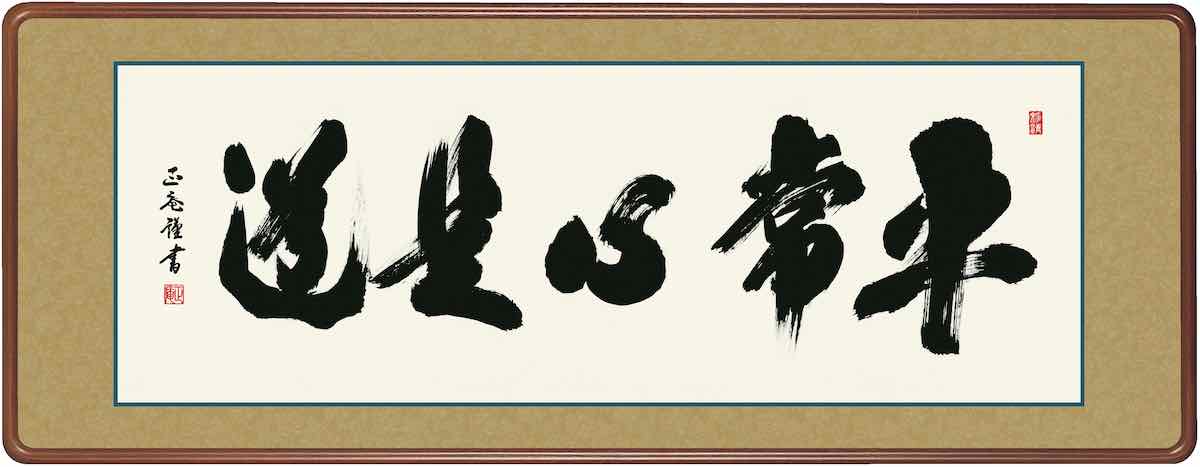 平常心是道
正菴謹書